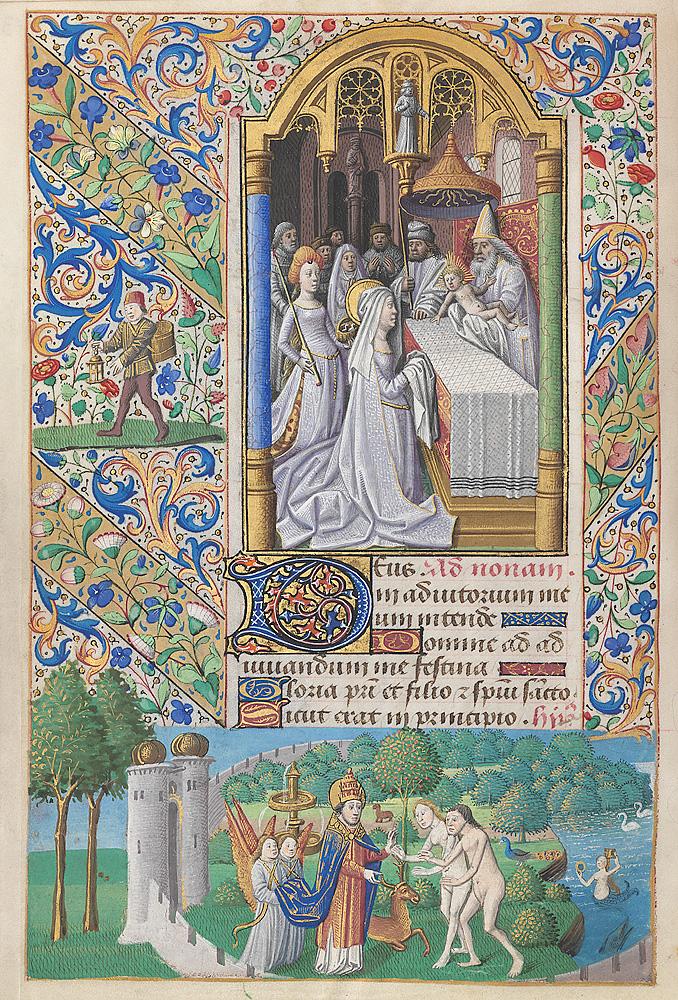 Deus Ad nonam.
in adiutorium me
um intende
Domine ad ad
iuuandum me festina
Gloria pr̄i et filio ⁊ sp̄ui sācto.
Sicut erat in principio.